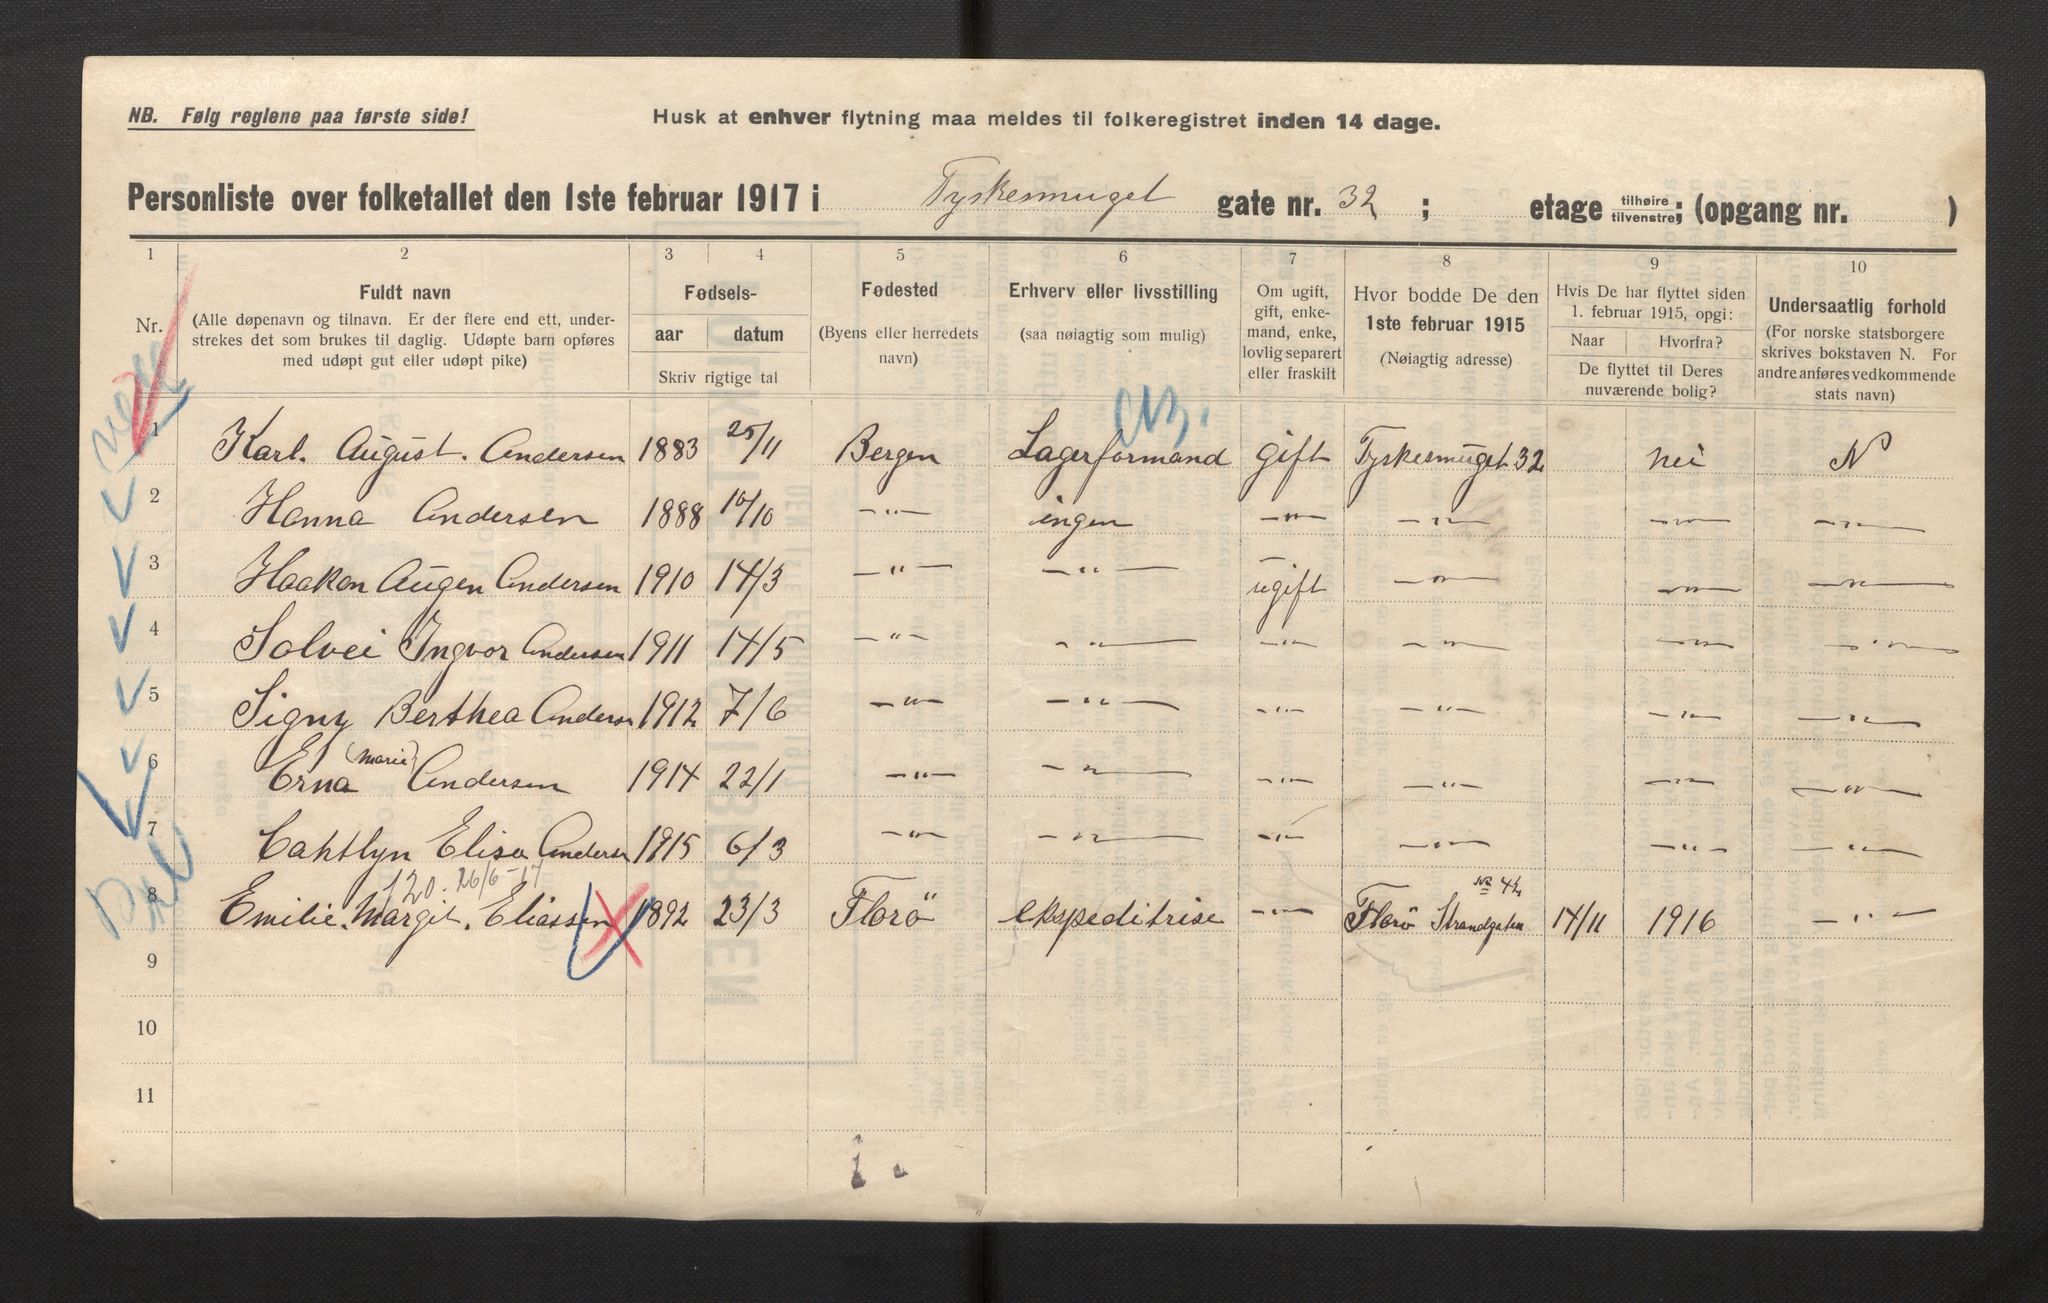 NB. Følg reglene paa første side!
Husk at enhver flytning maa meldes til folkeregistret inden 14 dage.
Personliste over folketallet den 1ste februar 1917 i Tyskesmuget gate nr. 32 ; etage tilhøire tilvenstre; (opgang nr. )
1 2 3 4 5 6 7 8 9 10
Nr.
Fuldt navn
(Alle døpenavn og tilnavn. Er der flere end ett, under-
strekes det som brukes til daglig. Udøpte barn opføres
med udøpt gut eller udøpt pike)
Fødsels-
aar datum
Skriv rigtige tal
Fødested
(Byens eller herredets
navn)
Erhverv eller livsstilling
(saa nøiagtig som mulig)
Om ugift,
gift, enke-
mand, enke,
lovlig separert
eller fraskilt
Hvor bodde De den
1ste februar 1915
(Nøiagtig adresse)
Hvis De har flyttet siden
1. februar 1915, opgi:
Naar Hvorfra?
De flyttet til Deres
nuværende bolig?
Undersaatlig forhold
(For norske statsborgere
skrives bokstaven N. For
andre anføres vedkommende
stats navn)
1 Karl. August. Andersen 1883 25/11 Bergen Lagerformand gift Tyskesmuget 32 nei N
2 Hanna Andersen 1888 10/10 -"- ingen -"- -"- -"- -"-
3 Haakon Augen Andersen 1910 14/3 -"- -"- ugift -"- -"- -"-
4 Solvei Ingvor Andersen 1911 14/5 -"- -"- -"- -"- -"- -"-
5 Signy Berthea Andersn 1912 7/6 -"- -"- -"- -"- -"- -"-
6 Erna (Marie) Andersen 1914 22/1 -"- -"- -"- -"- -"- -"-
7 Cahtlyn Elisa Anders 1915 6/3 -"- -"- -"- -"- -"- -"-
120. 26/6-17
8 Emilie. Margit. Eliassen 1892 23/3 Florö ekspeditrise -"- Florö Strandgaten No 42 14/11 1916 -"-
9
10
11